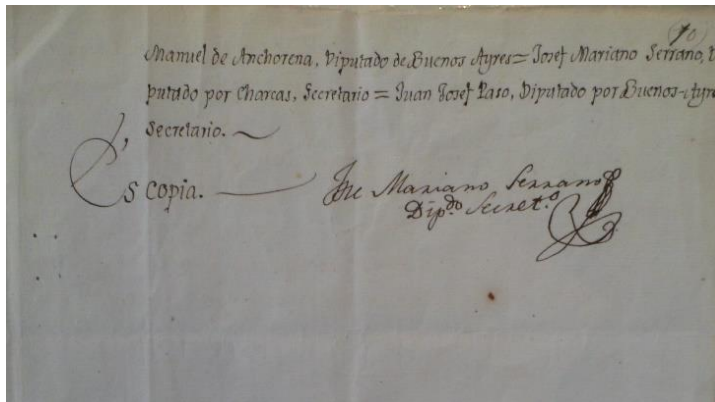 10
Manuel de Anchorena, Diputado de Buenos Ayres = Josef Mariano Serrano, D
putado por Charcas, Secretario = Juan Josef Paso, Diputado por Buenos-Ayre
Secretario.
Es copia. Jose Mariano Serrano
Dip.do Secret.o